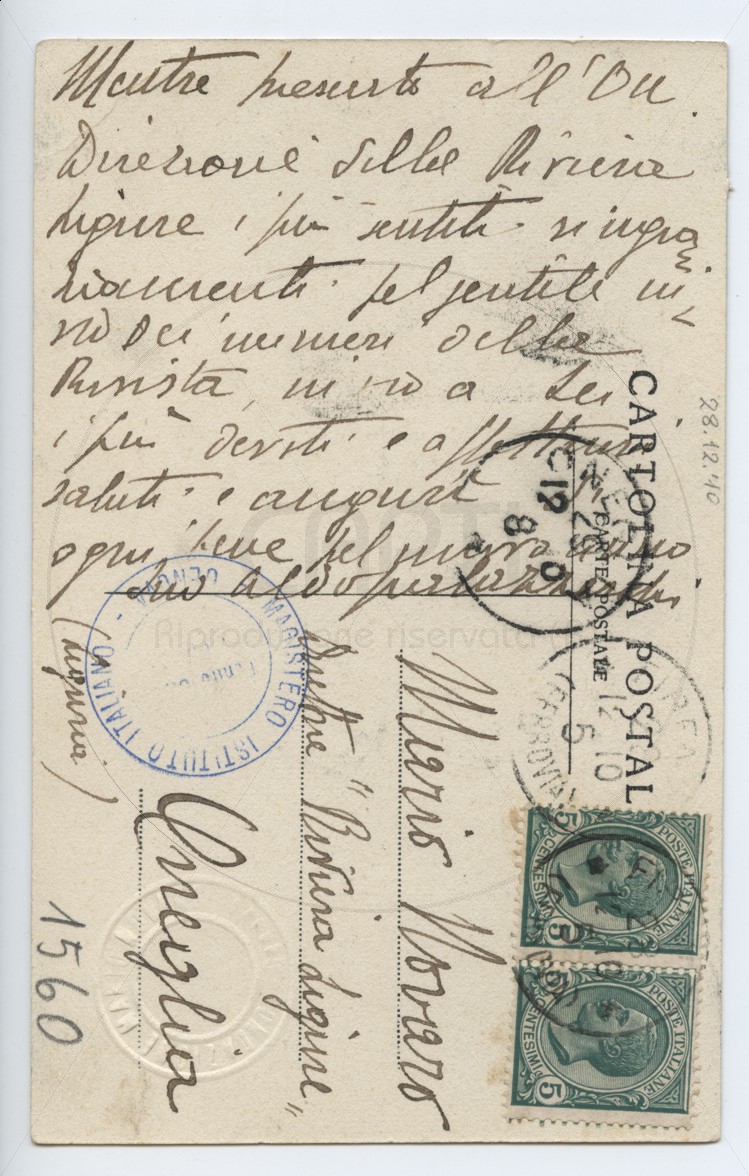 Mentre presento all'On.
Direzione della Riviera
Ligure i più sentiti ringra
ziamenti pel gentile in
vio dei numeri della
Rivista, invio a Lei
i più devoti e affettuosi
saluti e auguri di
ogni bene pel nuovo anno
suo Aldo
CARTOLINA POSTALE
CARTE POSTALE
28.12.40
Mario Novaro
Direttore "Riviera Ligure"
Oneglia
(Liguria)
1560
MAGISTERO ISTITUTO ITALIANO
POSTE ITALIANE
CENTESIMI
5 5
POSTE ITALIANE
CENTESIMI
5 5
Riproduzione riservata